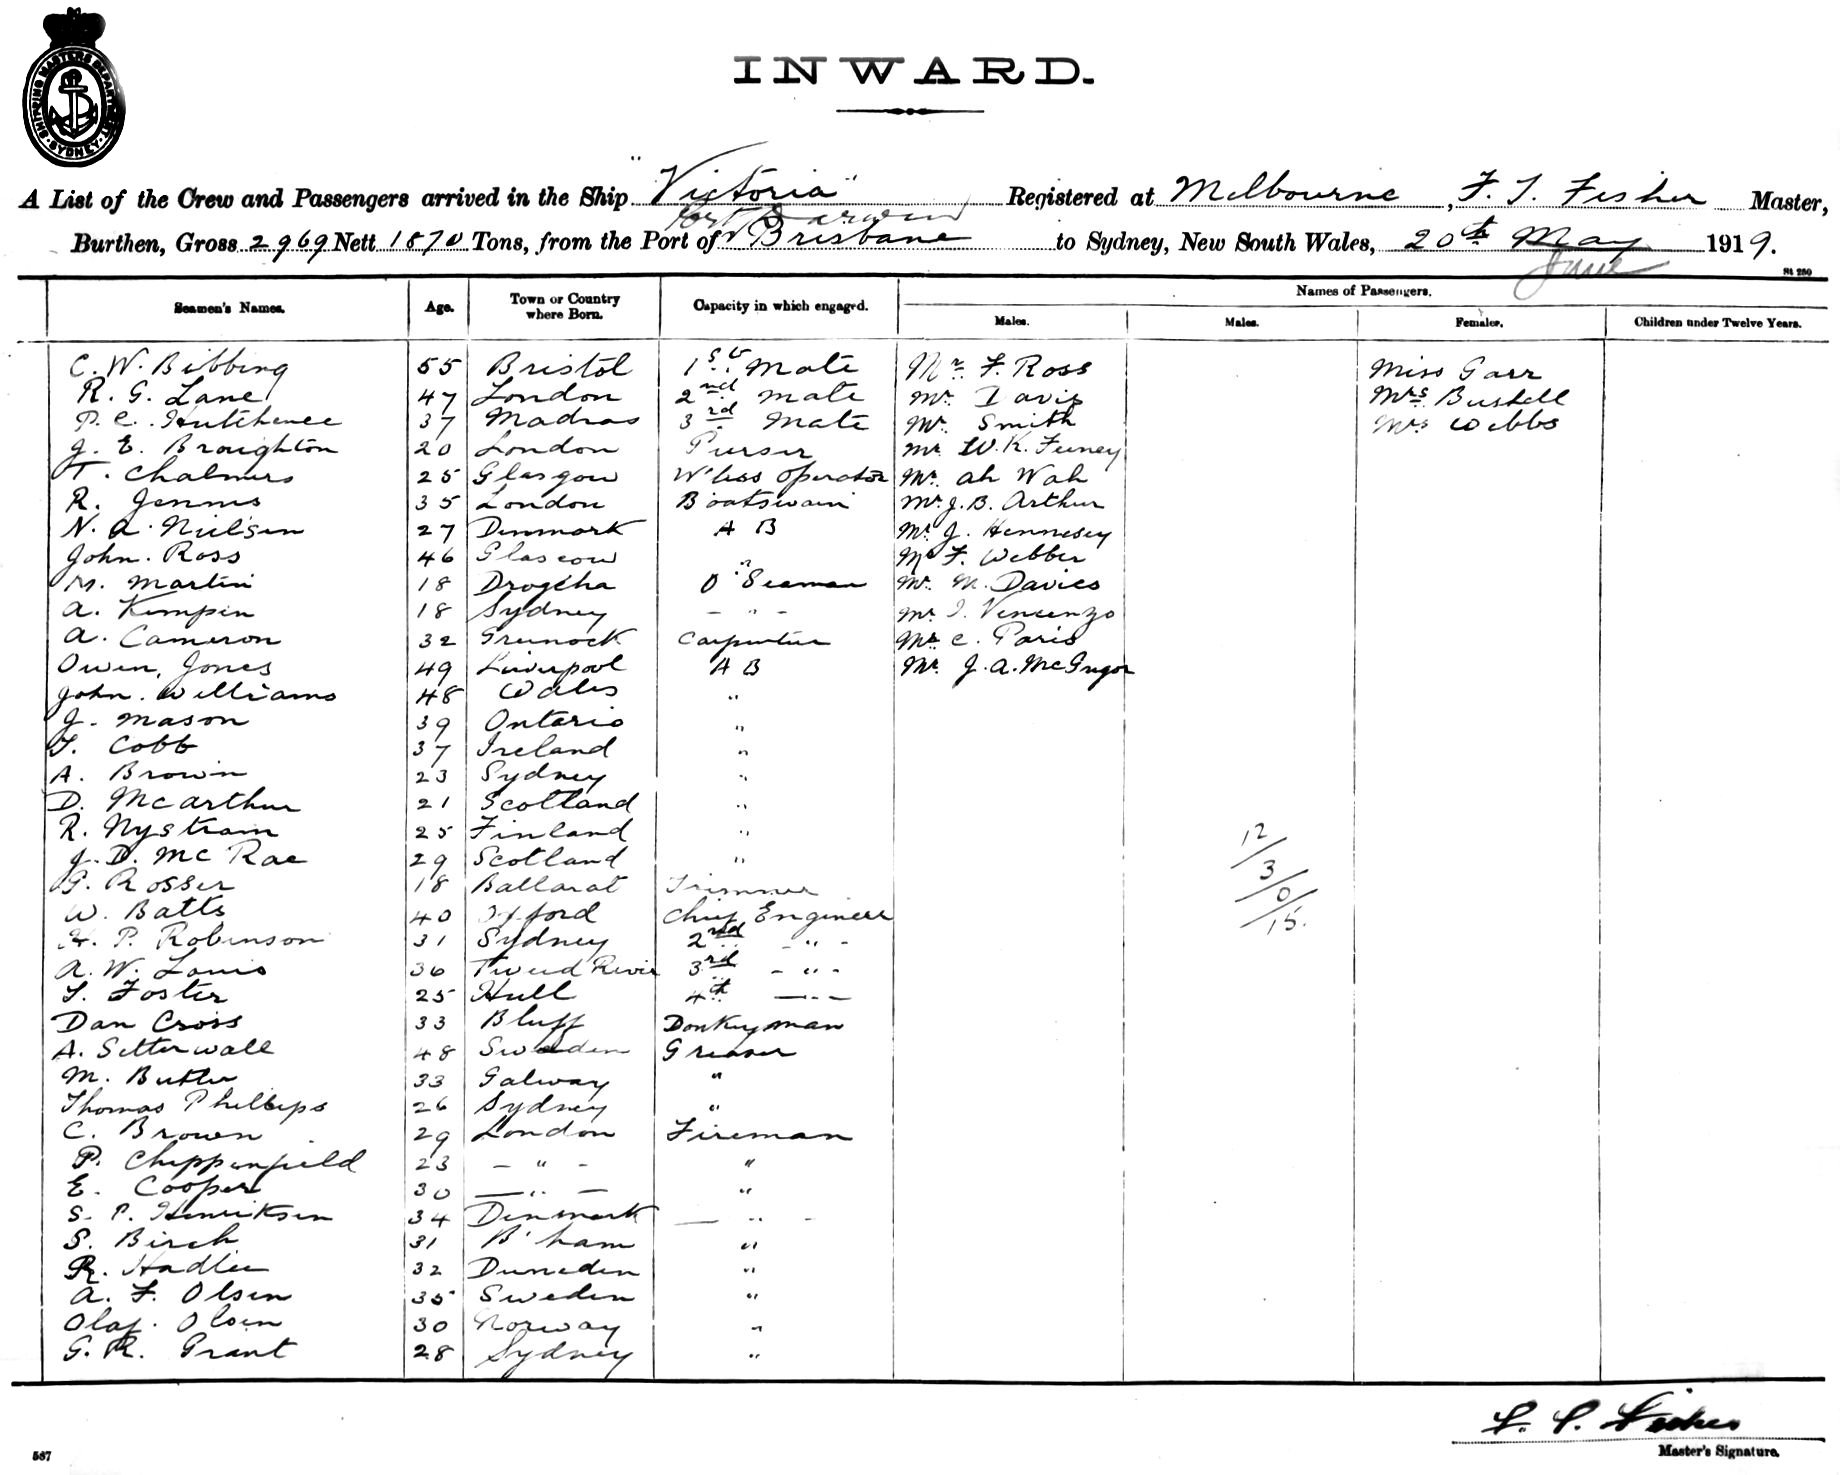 SHIPPING MASTERS DEPARTMENT SYDNEY
INWARD.
A List of the Crew and Passengers arrived in the Ship "Victoria" Registered at Melbourne, F. J. Fisher Master,
Port Darwin
Burthen, Gross 2969 Nett 1870 Tons, from the Port of Brisbane to Sydney, New South Wales, 20th May 1919.
June
St 250
Names of Passengers.
Seamen's Names. Age. Town or Country where Born. Capacity in which engaged. Males. Males. Females. Children under Twelve Years.
C. W. Bibbing 55 Bristol 1st Mate Mr. F. Ross Miss Garr
R. G. Lane 47 London 2nd Mate Mr Davis Mrs Buskell
P. C. Hutchence 37 Madras 3rd Mate Mr Smith Mrs Webbs
J. E. Broughton 20 London Purser Mr W. K. Feeney
T. Chalmers 25 Glasgow W'less Operator Mr. Ah Wah
R. Jennis 35 London Boatswain Mr. J. B. Arthur
N. A. Nielsen 27 Denmark A B Mr. J. Hennesey
John. Ross 46 Glascow " Mr F. Webber
M. Martin 18 Drogeha O. Seaman Mr. M. Davies
A. Kempen 18 Sydney - " - Mr. J. Vencenzo
A. Cameron 32 Greenock Carpenter Mr C. Paris
Owen, Jones 49 Liverpool A B Mr. J. A. McGregor
John. Williams 48 Wales "
J. Mason 39 Ontario "
T. Cobb 37 Ireland "
A. Brown 23 Sydney "
D. McArthur 21 Scotland "
R. Nystram 25 Finland "
J. D. McRae 29 Scotland "
G. Rosser 18 Ballarat Trimmer
W. Batts 40 Oxford Chief Engineer
H. P. Robinson 31 Sydney 2nd - " -
A. W. Louis 36 Tweed River 3rd - " -
T. Foster 25 Hull 4th - " -
Dan Cross 33 Bluff Donkeyman
A. Setterwall 48 Sweden Greaser
M. Butler 33 Galway "
Thomas Phillips 26 Sydney "
C. Brown 29 London Fireman
P. Chippenfield 23 - " - "
E. Cooper 30 - " - "
S. P. Henriksen 34 Denmark - " -
S. Birch 31 B'ham "
R. Hadlee 32 Duneden "
A. F. Olsen 35 Sweden "
Olaf. Olsen 30 Norway "
G. R. Grant 28 Sydney "
12/3/0/15.
Fisher
Master's Signature.
587